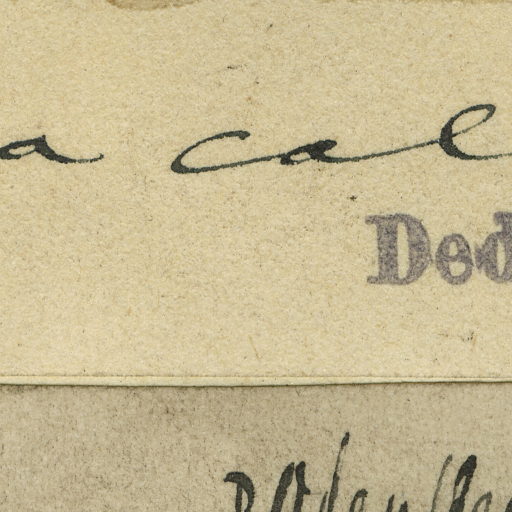 a cal
Ded